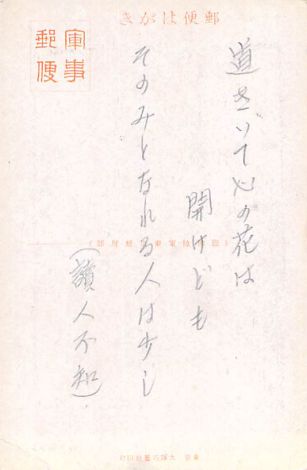 郵便はがき
軍事
郵便
道きいて心の花は
開けども
そのみとなれる人は少し
（讀人不知）